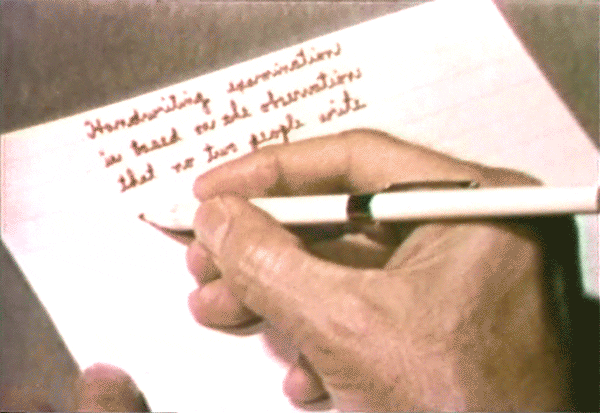 Handwriting examination
is based on the observation
that no two people write